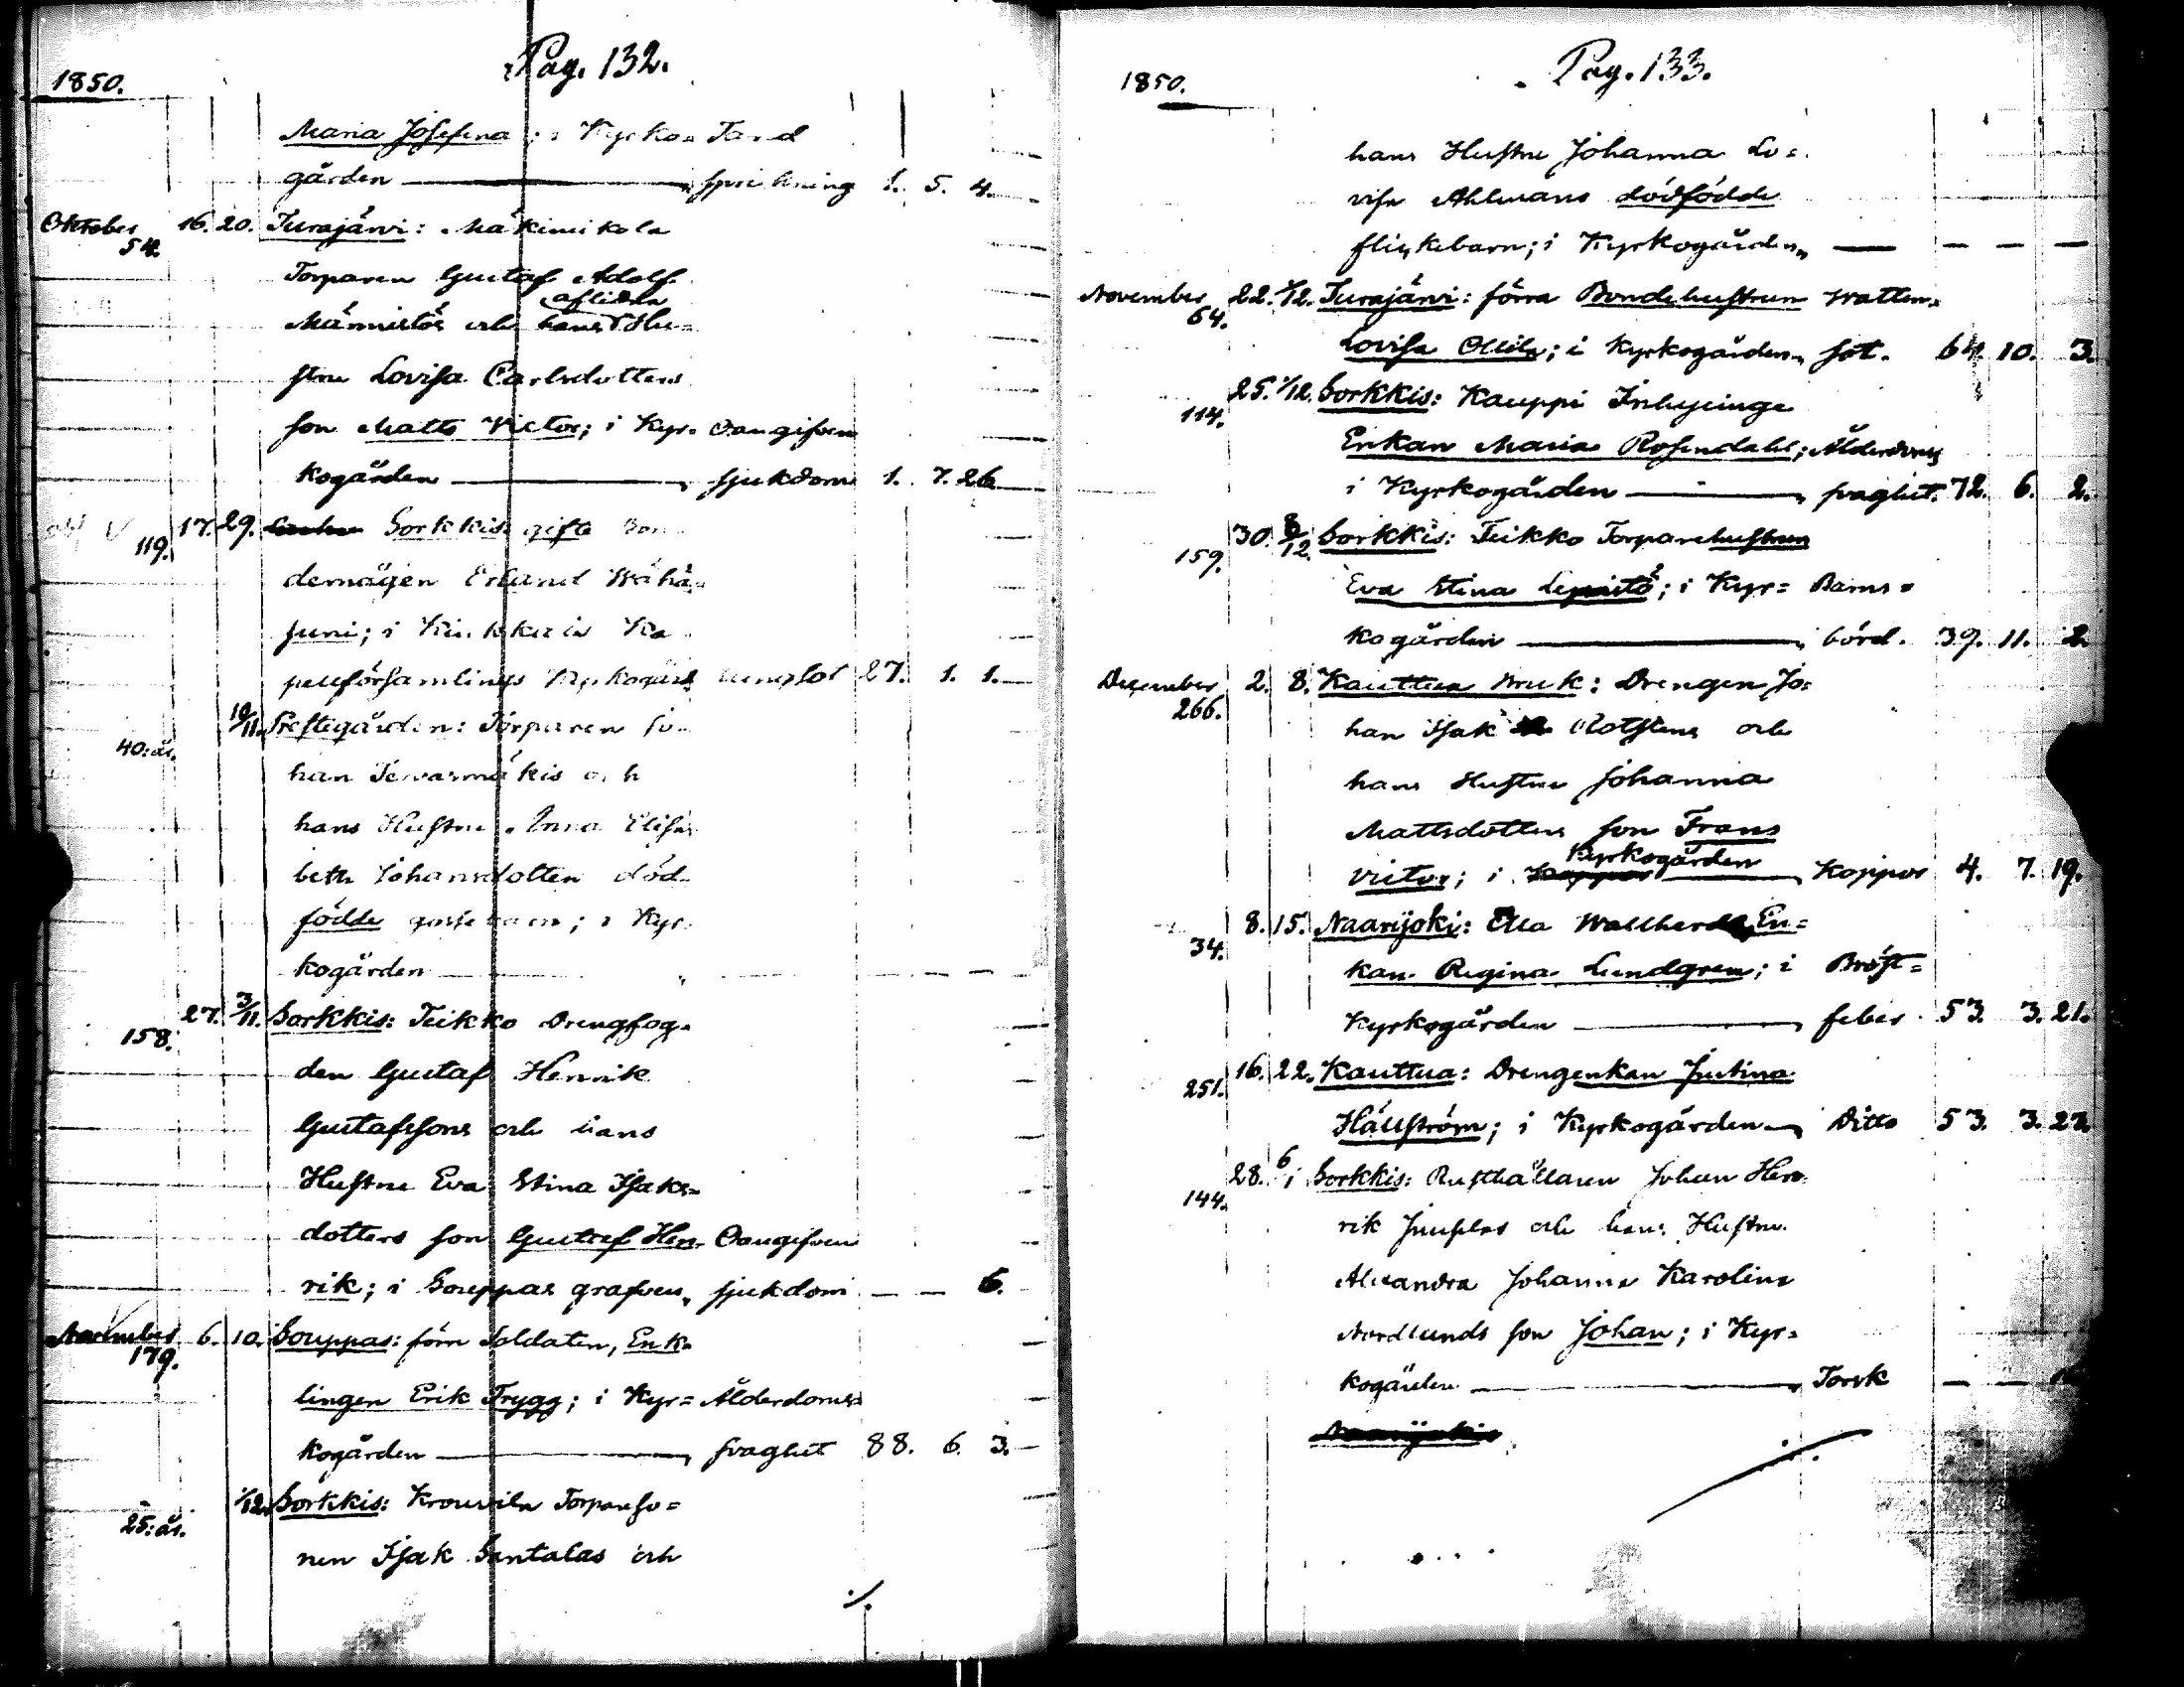 Pag. 132.
1850.
Maria Josefina; i Kyrko= Tand
gården sprickning 1. 5. 4.
Oktober 54. 16. 20. Turajärvi: Mäkimikola
Torparen Gustaf Adolf
aflidna
Männistös och hans Hu=
stru Lovisa Carlsdotters
son Matts Victor; i Kyr= Oangifven
kogården sjukdom 1. 7. 26
119. 17. 29. Sorkkis gifte Bon
demågen Erland Wähä=
Juni; i Ka
pellförsamlings Kyrkogård lungsot 27. 1. 1.
40: ås. 10/11. Prestegården: Torparen Jo=
han Tervasmäkis och
hans Hustru Anna Elisa
beth Johansdotters död=
födde gossebarn; i Kyr
kogården — — —
158. 27. 3/11. Sorkkis: Teikko Drengfog=
den Gustaf Henrik
Gustafssons och hans
Hustru Eva Stina Isaks=
dotters son Gustaf Hen= Oangifven
rik; i Souppas grafven, sjukdom — — 6.
November 179. 6. 10. Souppas: förre Soldaten, Enk=
lingen Erik Trygg; i Kyr= Ålderdoms=
kogården svaghet 88. 6. 3.
25: ås. 1/12. Sorkkis: Krouvila Torpareso=
nen Isak Santalas och
./.
Pag. 133.
1850.
hans Hustru Johanna Lo=
visa Ahlmans dödfödde
flickebarn; i Kyrkogården, — — — —
November 64. 22. 1/12. Turajärvi: förra Bondehustrun Watten=
Lovisa Ollila; i Kyrkogården, sot. 64. 10. 3.
114. 25. 1/12. Sorkkis: Kauppi Inhysinge
Enkan Maria Rosendahl; Ålderdoms
i Kyrkogården svaghet. 72. 6. 2.
159. 30. 8/12. Sorkkis: Teikko Torparehustrun
Eva Stina Lepistö; i Kyr= Barns=
kogården börd. 39. 11. 2.
December 266. 2. 8. Kauttua Bruk: Drengen Jo=
han Isak Rotstens och
hans Hustru Johanna
Mattsdotters son Frans
Kyrkogården
Victor; i Koppor 4. 7. 19.
34. 8. 15. Naarijoki: Ella En=
kan Regina Lundgren; i Bröst=
Kyrkogården feber 53. 3. 21.
251. 16. 22. Kauttua: Drengenkan Justina
Hällström; i Kyrkogården Ditto 53. 3. 27.
144. 28. 6/1 Sorkkis: Rusthållaren Johan Hen=
rik Junnilas och hans Hustru
Alexandra Johanna Karolina
Nordlunds son Johan; i Kyr=
kogården Torsk — —